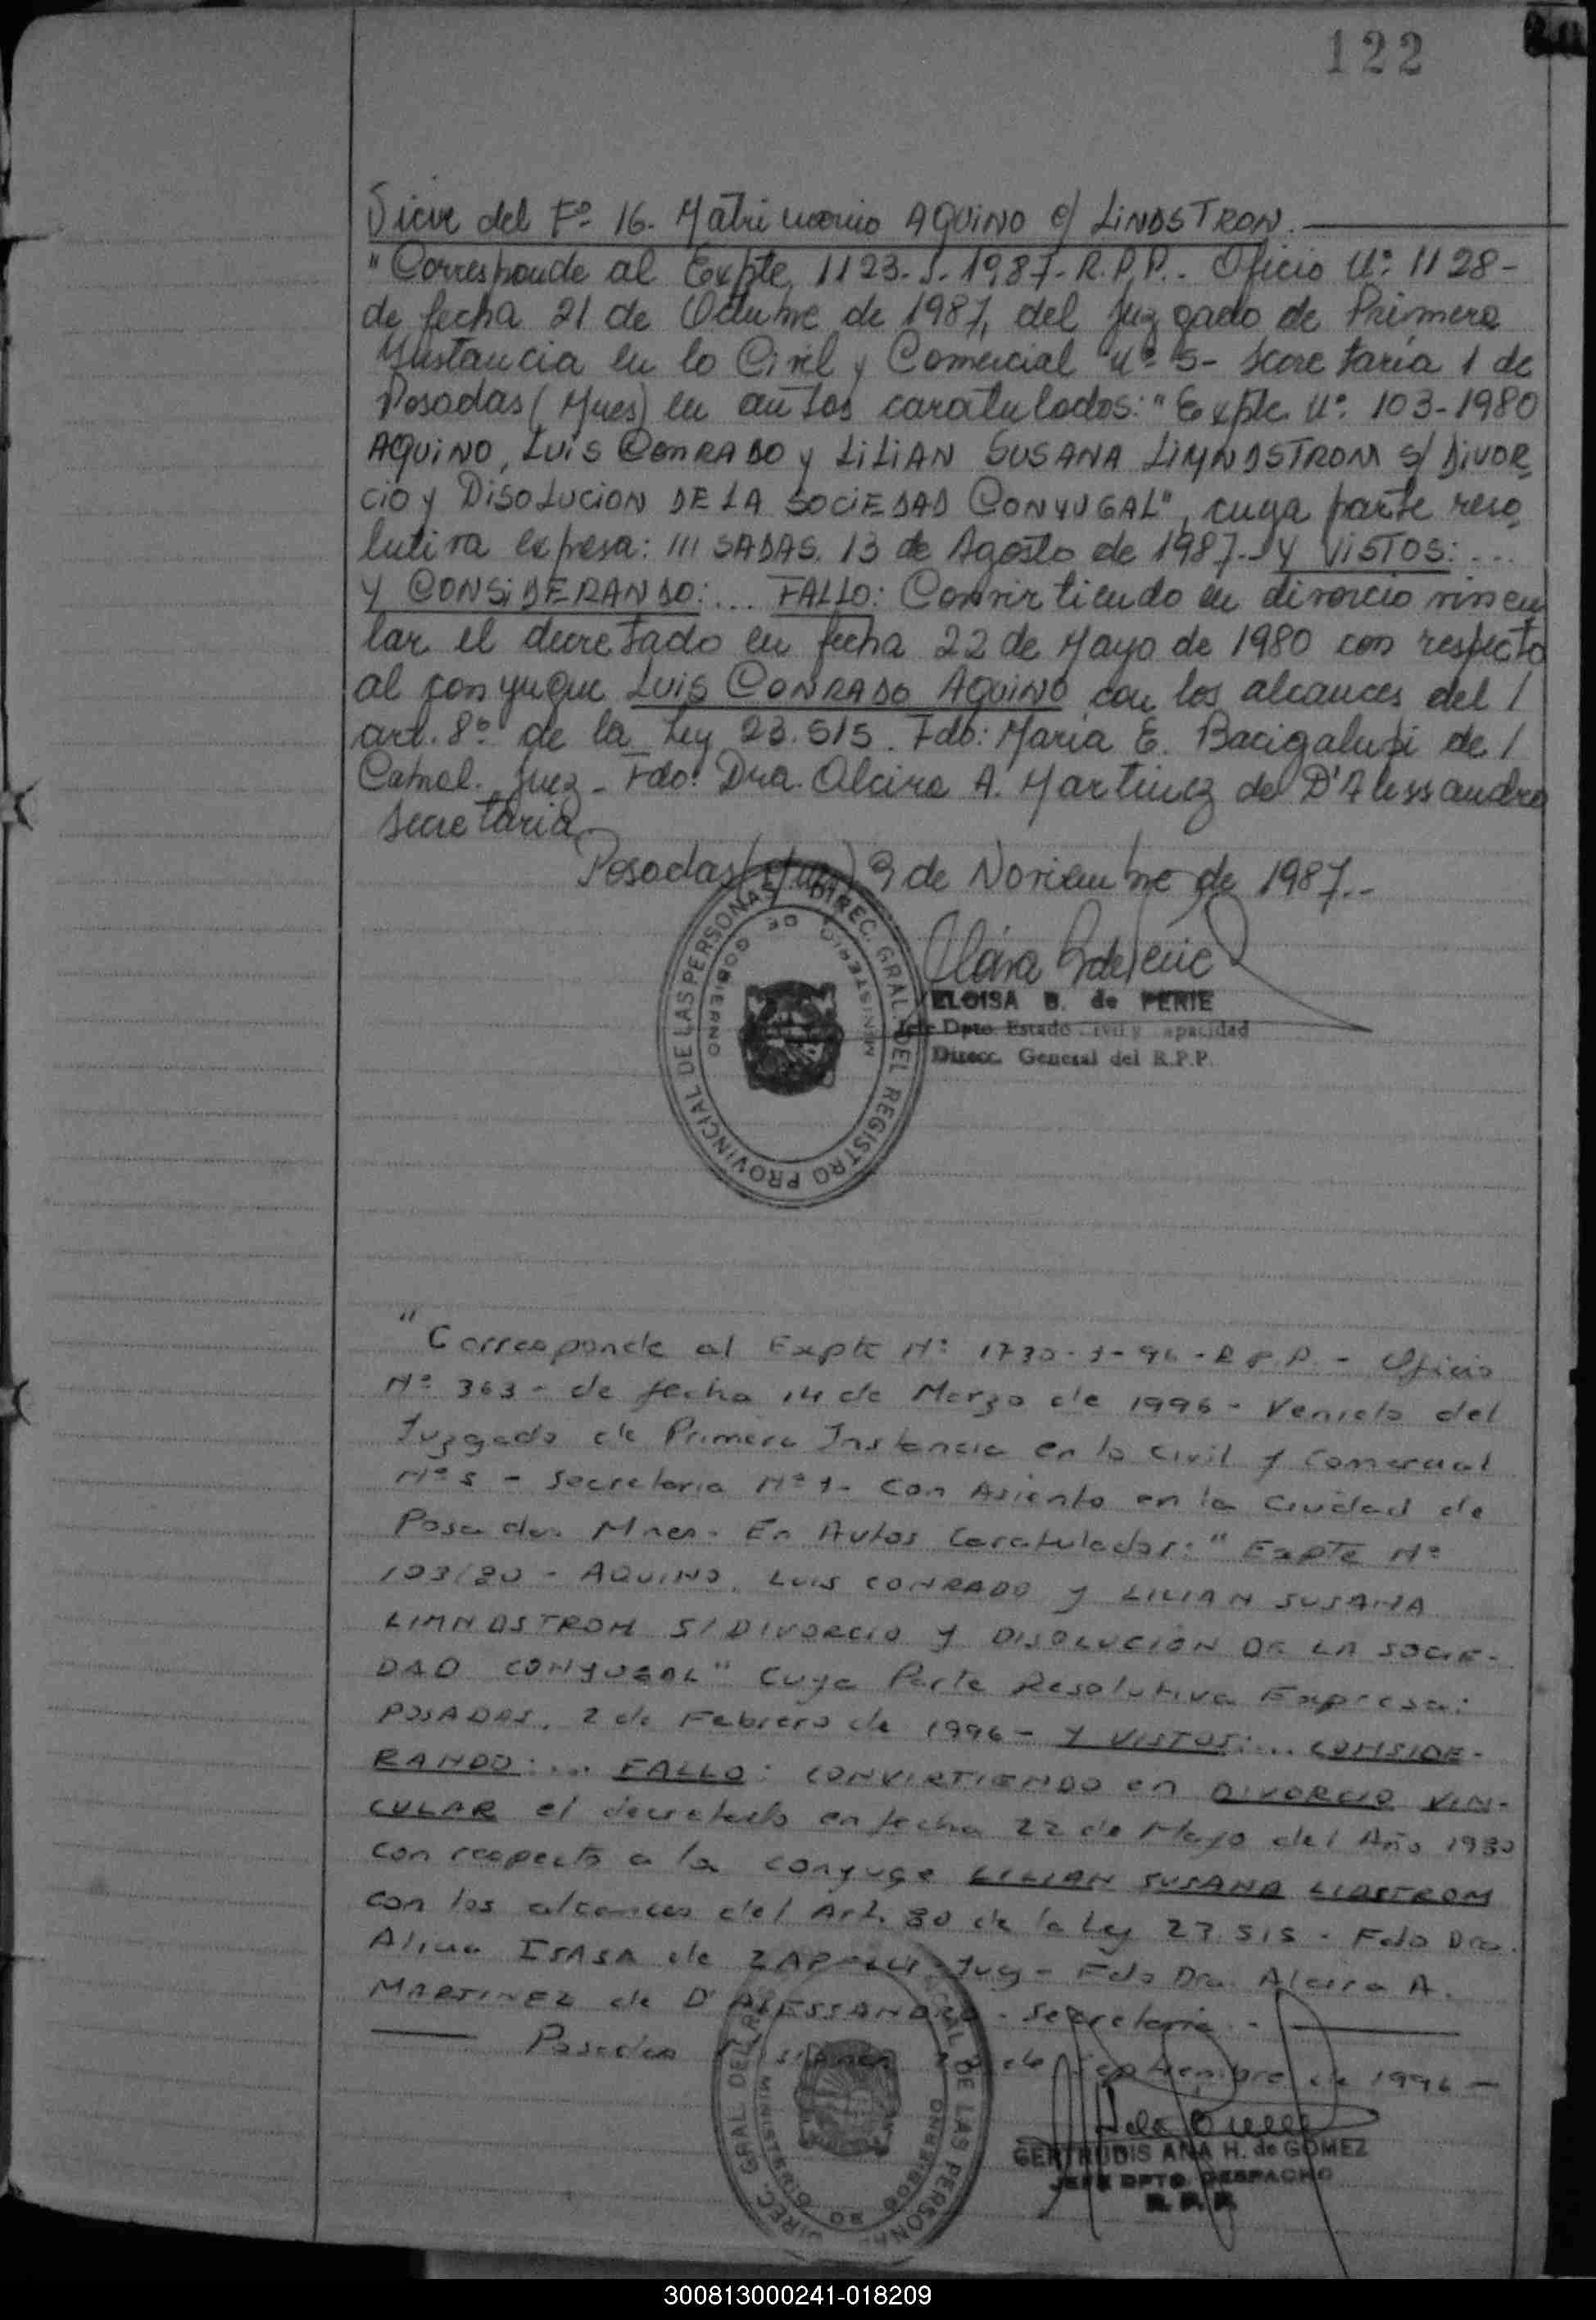 122
Viene del Fº 16. Matrimonio AQUINO c/ LINDSTRON.
"Corresponde al Expte. 1123-J-1987-R.P.P.- Oficio Nº 1128-
de fecha 21 de Octubre de 1987, del Juzgado de Primera
Instancia en lo Civil y Comercial Nº 5- Secretaría 1 de
Posadas (Mnes) en autos caratulados: "Expte. Nº 103-1980
AQUINO, LUIS CONRADO y LILIAN SUSANA LIMNDSTROM S/ DIVOR
CIO y DISOLUCION DE LA SOCIEDAD CONYUGAL", cuya parte reso
lutiva expesa: ///SADAS. 13 de Agosto de 1987.- Y VISTOS: ...
Y CONSIDERANDO: ... FALLO: Convirtiendo en divorcio vincu
lar el decretado en fecha 22 de Mayo de 1980 con respecto
al conyugue LUIS CONRADO AQUINO con los alcances del /
art. 8º de la Ley 23.515. Fdo: Maria E. Bacigalupi de /
Cabral. Juez- Fdo: Dra. Alcira A. Martinez de D'Alessandro
Secretaria
Posadas (Mnes) 9 de Noviembre de 1987.-
ELOISA B. de PERIE
Jefe Dpto. Estado Civil y Capacidad
Direcc. General del R.P.P.
DIREC. GRAL. DEL REGISTRO PROVINCIAL DE LAS PERSONAS
MINISTERIO DE GOBIERNO
"Corresponde al Expte Nº 1730-J-96-R.P.P.- Oficio
Nº 363- de fecha 14 de Marzo de 1996- Venido del
Juzgado de Primera Instancia en lo Civil y Comercial
Nº 5 - Secretaria Nº 1- Con Asiento en la Ciudad de
Posadas Mnes- En Autos Caratulados: "Expte Nº
103/80 - AQUINO, LUIS CONRADO y LILIAN SUSANA
LIMNDSTROM S/DIVORCIO Y DISOLUCION DE LA SOCIE-
DAD CONYUGAL" Cuya Parte Resolutiva Expresa:
POSADAS, 2 de Febrero de 1996- Y VISTOS: ... CONSIDE-
RANDO: ... FALLO: CONVIRTIENDO en DIVORCIO VIN-
CULAR el decretado en fecha 22 de Mayo del Año 1980
con respecto a la conyuge LILIAN SUSANA LIDSTROM
con los alcances del Art. 80 de la Ley 23.515 - Fdo Dra.
Alicia ISASA de Juez- Fdo Dra. Alcira A.
MARTINEZ de D'ALESSANDRO - Secretaria.-
Posadas Misiones de Septiembre de 1996-
GERTRUDIS ANA H. de GOMEZ
JEFE DPTO. DESPACHO
R. P. P.
DIREC. GRAL. DEL DE LAS PERSONAS
MINISTERIO DE GOBIERNO
300813000241-018209